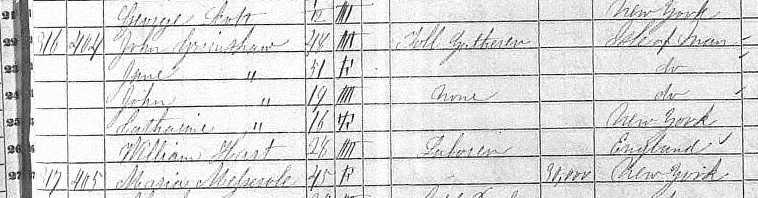 21 George 12 M New York
22 316 404 John Grimshaw 48 M Toll Gatherer Isle of Man
23 Jane " 51 F do
24 John " 19 M none do
25 Catharine " 16 F New York
26 William 28 M Laborer England
27 317 405 Maria Meserole 45 F 30,000 New York